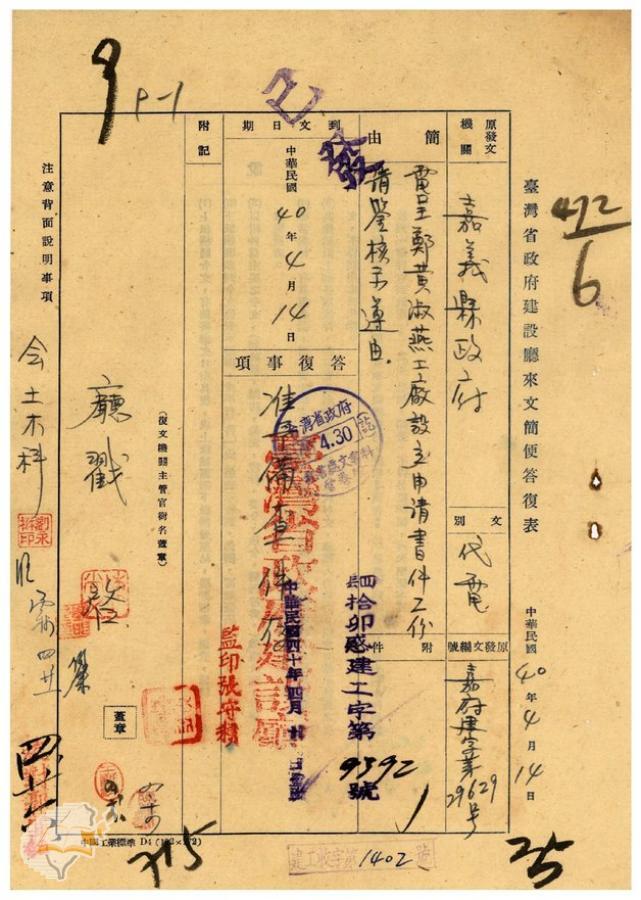 臺灣省政府建設廳來文簡便答復表
中華民國40年4月14日
472
6
原發文機關
嘉義縣政府
文別
代電
原發文編號
嘉府建字第29629号
簡由
電呈鄭黃淑燕工廠設立申請書件乙份
請鑒核示遵由.
附件
1
到文日期
中華民國40年4月14日
答復事項
准予備查
附記
已發
四拾卯感建工字第
9392號
中華民國四十年四月
監印張守積
臺灣省政府
4.30
(復文機關主管官銜名蓋章)
廳戳
蓋章
注意背面說明事項
会土木科
P-1
中國工業標準 D4
建工收字第1402號
315
25